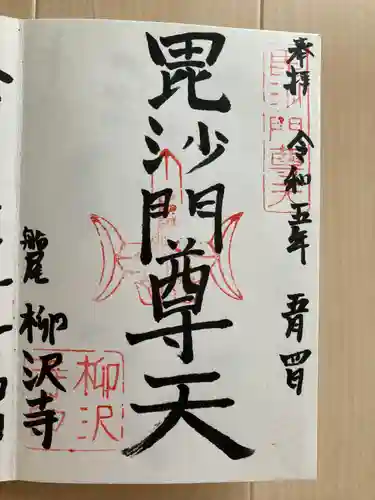 奉拝 令和五年 五月四日
毘沙門尊天
船尾 柳沢寺
毘沙門尊天
柳沢